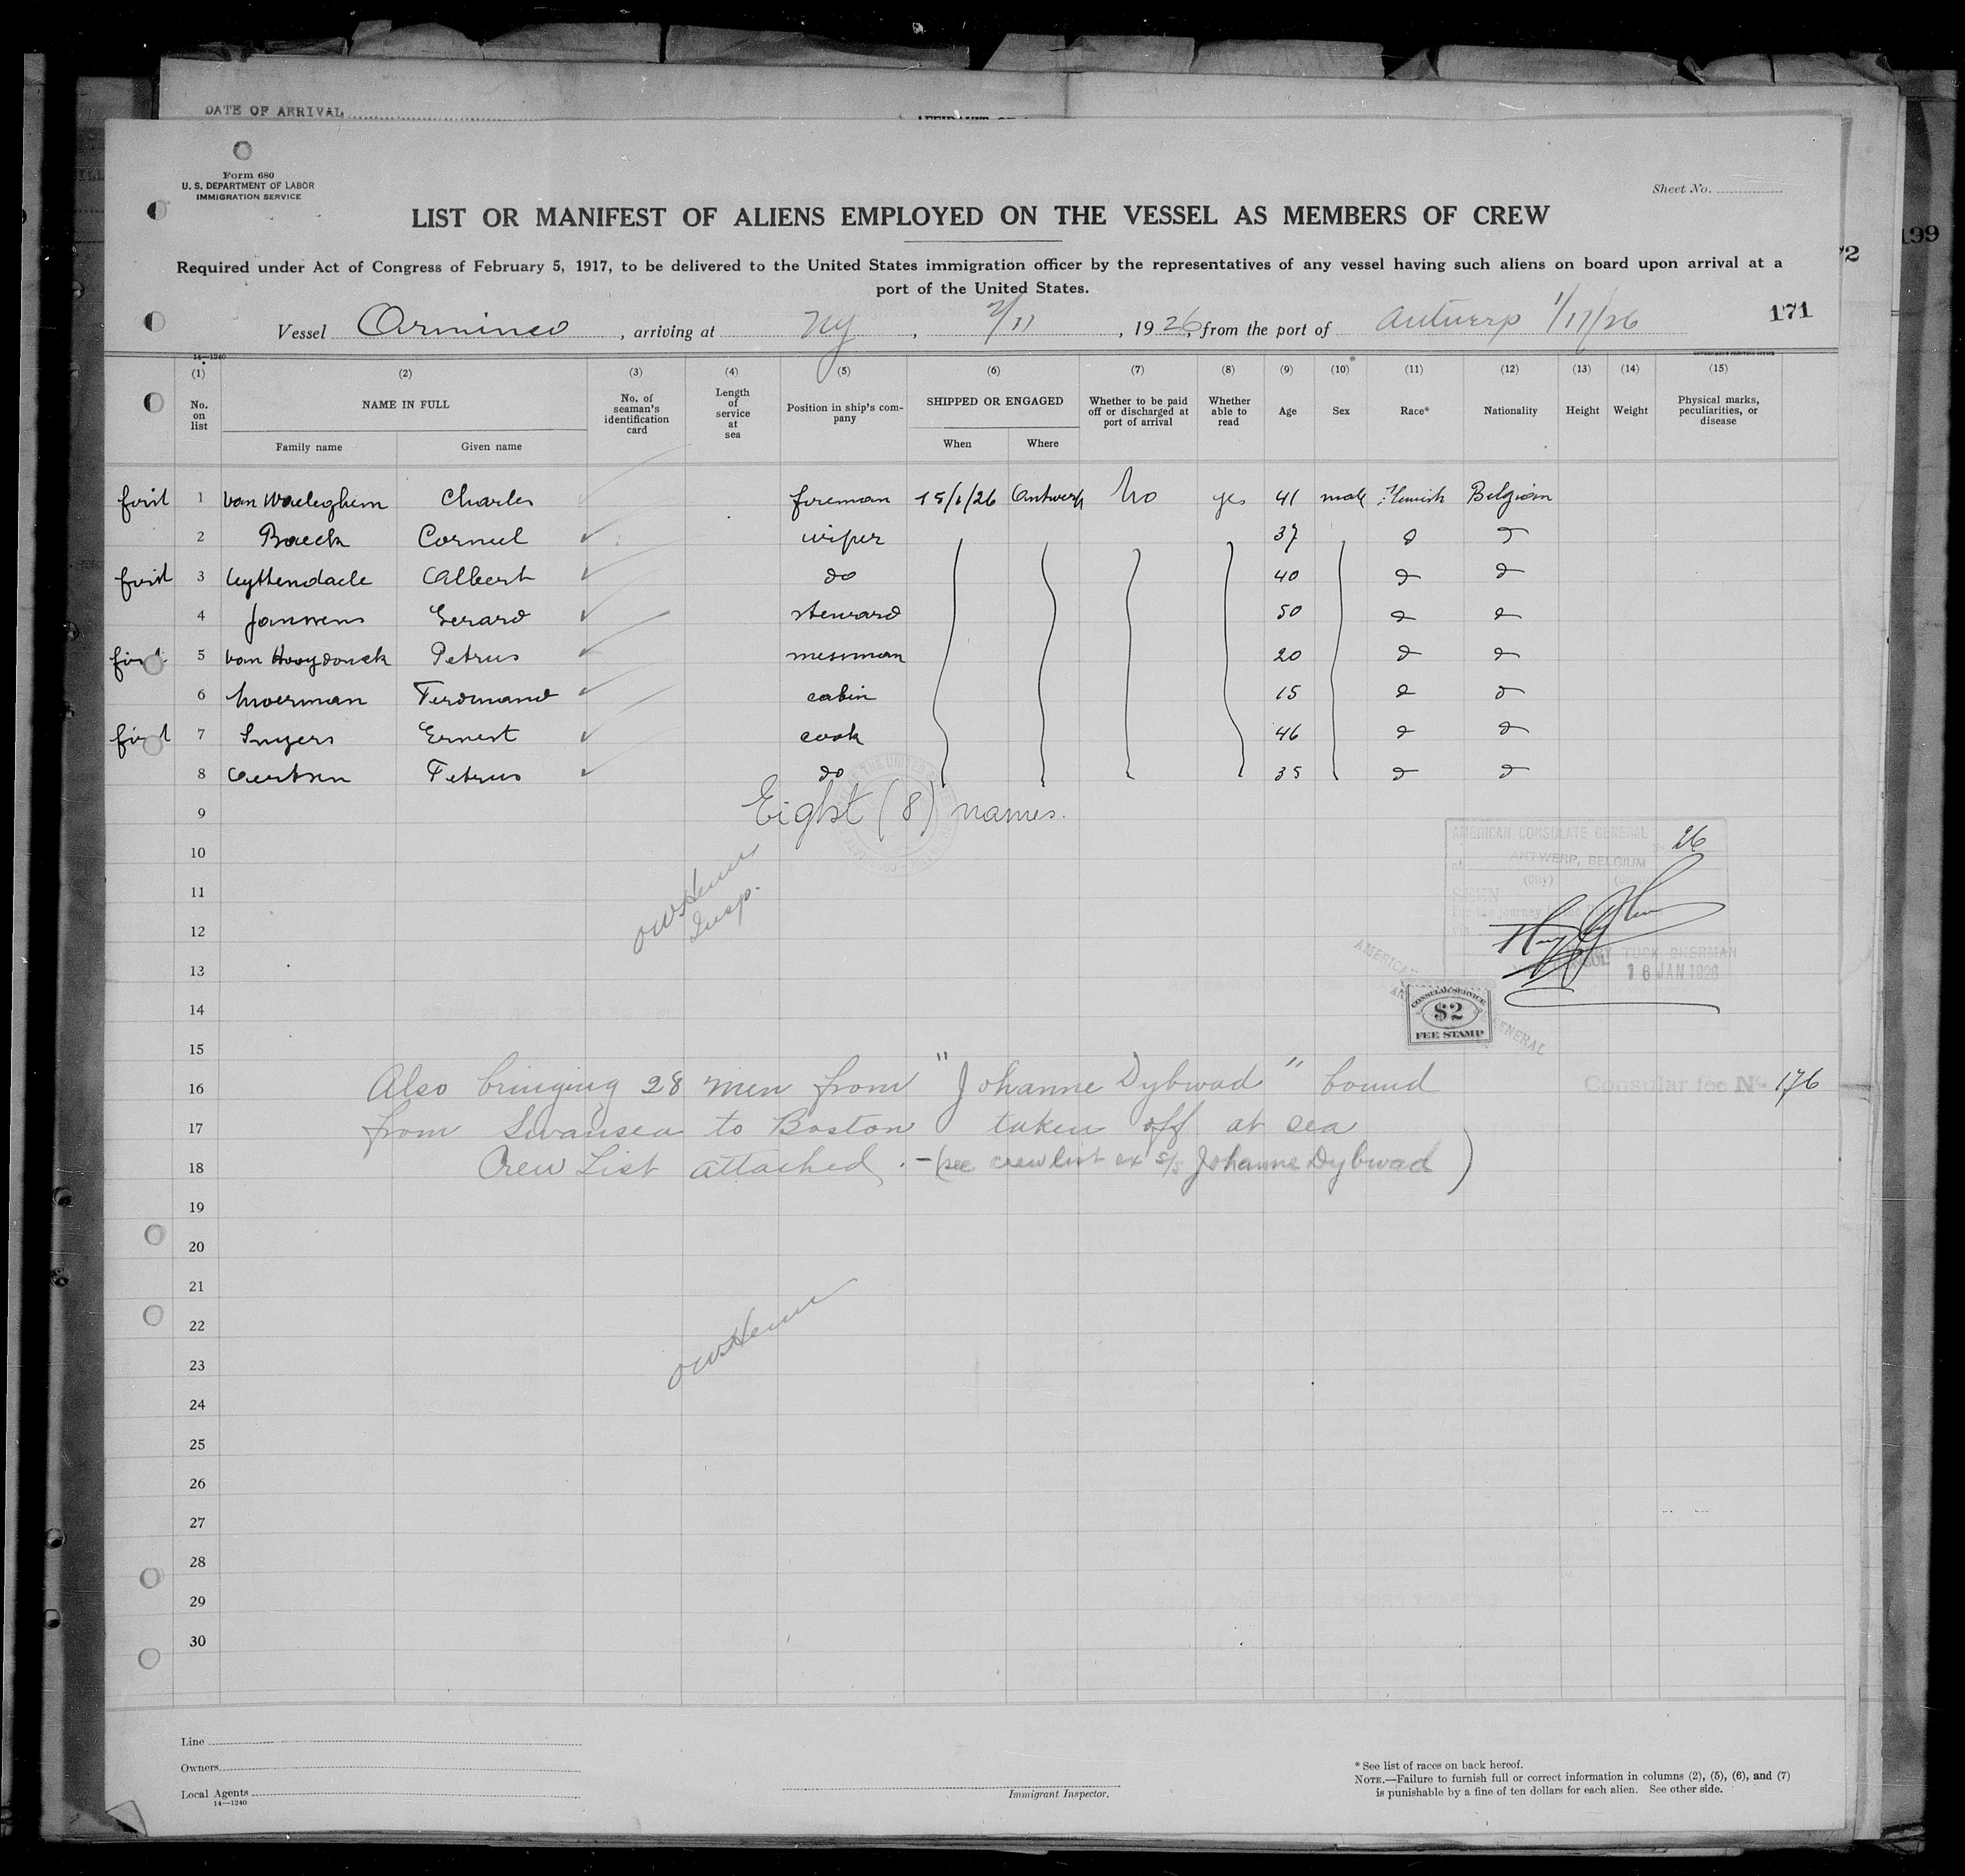 DATE OF ARRIVAL
Form 680
U. S. DEPARTMENT OF LABOR
IMMIGRATION SERVICE
Sheet No.
LIST OR MANIFEST OF ALIENS EMPLOYED ON THE VESSEL AS MEMBERS OF CREW
199
72
Required under Act of Congress of February 5, 1917, to be delivered to the United States immigration officer by the representatives of any vessel having such aliens on board upon arrival at a
port of the United States.
171
Vessel Arminco, arriving at NY, 2/11, 1926, from the port of Antwerp 1/17/26
14—1240
(1) (2) (3) (4) (5) (6) (7) (8) (9) (10) (11) (12) (13) (14) (15)
No. on list NAME IN FULL Family name Given name No. of seaman's identification card Length of service at sea Position in ship's company SHIPPED OR ENGAGED When Where Whether to be paid off or discharged at port of arrival Whether able to read Age Sex Race* Nationality Height Weight Physical marks, peculiarities, or disease
first 1 Van Waeleghem Charles fireman 15/1/26 Antwerp No yes 41 male Flemish Belgian
2 Baeck Corneel wiper 37 do do
first 3 Uyttendaele Albert do 40 do do
4 Janssens Gerard steward 50 do do
first 5 Van Hooydonck Petrus messman 20 do do
6 Moerman Ferdinand cabin 15 do do
first 7 Snyers Ernest cook 46 do do
8 Aertsen Petrus do 35 do do
9 Eight (8) names.
10
11
12
Insp.
13
14
15
AMERICAN CONSULATE GENERAL
26
ANTWERP, BELGIUM
(City)
SEEN
For the journey to the
TUCK SHERMAN
16 JAN 1926
CONSULAR SERVICE
$2
FEE STAMP
16 Also bringing 28 men from "Johanne Dybwad" bound
Consular fee No. 176
17 from Swansea to Boston taken off at sea
18 Crew List attached. - (see crew list ex s/s Johanne Dybwad)
19
20
21
22
23
24
25
26
27
28
29
30
Line
Owners
Local Agents
14—1240
Immigrant Inspector.
* See list of races on back hereof.
NOTE.—Failure to furnish full or correct information in columns (2), (5), (6), and (7)
is punishable by a fine of ten dollars for each alien. See other side.